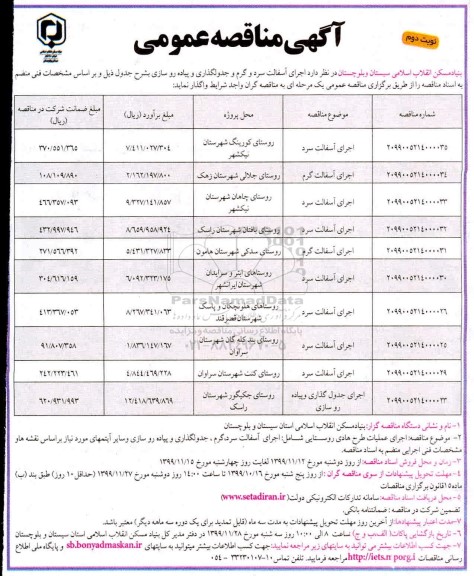 آگهی مناقصه عمومی
نوبت دوم
بنیادمسکن انقلاب اسلامی سیستان وبلوچستان در نظر دارد اجرای آسفالت سرد و گرم و جدولگذاری و پیاده رو سازی بشرح جدول ذیل و بر اساس مشخصات فنی منضم
به اسناد مناقصه را از طریق برگزاری مناقصه عمومی یک مرحله ای به مناقصه گران واجد شرایط واگذار نماید:
شماره مناقصه موضوع مناقصه محل پروژه مبلغ برآورد (ریال) مبلغ ضمانت شرکت در مناقصه (ریال)
۲۰۹۹۰۰۵۲۱۴۰۰۰۰۳۵ اجرای آسفالت سرد روستای کورینگ شهرستان نیکشهر ۷/۴۱۱/۰۲۷/۳۰۴ ۳۷۰/۵۵۱/۳۶۵
۲۰۹۹۰۰۵۲۱۴۰۰۰۰۳۴ اجرای آسفالت گرم روستای جلالی شهرستان زهک ۲/۱۶۲/۱۹۷/۸۰۰ ۱۰۸/۱۰۹/۸۹۰
۲۰۹۹۰۰۵۲۱۴۰۰۰۰۳۳ اجرای آسفالت سرد روستای چاهان شهرستان نیکشهر ۹/۳۲۷/۱۴۱/۸۵۷ ۴۶۶/۳۵۷/۰۹۳
۲۰۹۹۰۰۵۲۱۴۰۰۰۰۳۲ اجرای آسفالت سرد روستای بافتان شهرستان راسک ۸/۶۵۹/۹۵۸/۹۲۴ ۴۳۲/۹۹۷/۹۴۶
۲۰۹۹۰۰۵۲۱۴۰۰۰۰۳۱ اجرای آسفالت گرم روستای سدکی شهرستان هامون ۵/۴۳۱/۳۲۷/۸۳۳ ۲۷۱/۵۶۶/۳۹۲
۲۰۹۹۰۰۵۲۱۴۰۰۰۰۳۰ اجرای آسفالت سرد شهرستان ایرانشهر ۶/۰۹۲/۳۲۳/۱۷۵ ۳۰۴/۶۱۶/۱۵۹
۲۰۹۹۰۰۵۲۱۴۰۰۰۰۲۶ اجرای آسفالت سرد شهرستان قصرقند ۸/۲۶۷/۳۴۱/۰۶۳ ۴۱۳/۳۶۷/۰۵۳
۲۰۹۹۰۰۵۲۱۴۰۰۰۰۲۵ اجرای آسفالت سرد روستای بند کله گان شهرستان سراوان ۱/۸۳۶/۱۴۷/۱۶۷ ۹۱/۸۰۷/۳۵۸
۲۰۹۹۰۰۵۲۱۴۰۰۰۰۲۹ اجرای آسفالت سرد روستای کنت شهرستان سراوان ۴/۸۴۴/۴۶۹/۲۲۸ ۲۴۲/۲۲۳/۴۶۱
۲۰۹۹۰۰۵۲۱۴۰۰۰۰۲۳ اجرای جدول گذاری و پیاده رو سازی روستای جکیگور شهرستان راسک ۱۲/۴۱۸/۶۳۹/۸۶۹ ۶۲۰/۹۳۱/۹۹۳
ParsNamadData
پایگاه اطلاع رسانی مناقصه و مزایده
۱-نام و نشانی دستگاه مناقصه گزار: بنیادمسکن انقلاب اسلامی استان سیستان و بلوچستان
۲- موضوع مناقصه: اجرای عملیات طرح هادی روستایی شامل: اجرای آسفالت سردگرم ، جدولگذاری و پیاده رو سازی وسایر آیتمهای مورد نیاز براساس نقشه هاو
مشخصات فنی اجرایی منضم به اسناد مناقصه.
۳-زمان و محل فروش اسناد مناقصه: از روز دوشنبه مورخ ۱۳۹۹/۱۱/۱۲ لغایت روز چهارشنبه مورخ ۱۳۹۹/۱۱/۱۵
۴-مهلت تحویل پیشنهادات از سوی مناقصه گران: از روز پنج شنبه مورخ ۱۳۹۹/۱۰/۱۶ تا ساعت ۱۴:۰۰ روز دوشنبه مورخ ۱۳۹۹/۱۱/۲۷ (حداقل ۱۰ روز) طبق بند (ب)
ماده۱۵قانون برگزاری مناقصات
۵-محل دریافت اسناد مناقصه: سامانه تدارکات الکترونیکی دولت( www.setadiran.ir)
تضمین شرکت در مناقصه: ضمانتنامه بانکی.
۷-مدت اعتبار پیشنهادها: از آخرین روز مهلت تحویل پیشنهادات به مدت سه ماه (قابل تمدید برای یک دوره سه ماهه دیگر) معتبر باشد.
۶-تاریخ بازگشایی پاکات: الف،ب و ج) ساعت ۸ الی ۱۰:۰۰ روز سه شنبه مورخ ۱۳۹۹/۱۱/۲۸ در دفتر مدیر کل بنیاد مسکن انقلاب اسلامی استان سیستان و بلوچستان
۷-جهت کسب اطلاعات بیشتر می توانید به سایتهای زیر مراجعه نمایید: جهت کسب اطلاعات بیشتر میتوانید به سایتهای sb.bonyadmaskan.ir و پایگاه ملی اطلاع
رسانی مناقصات مراجعه فرمایید. تلفن تماس: ۱۰-۳۳۲۳۰۱۰۷-۰۵۴